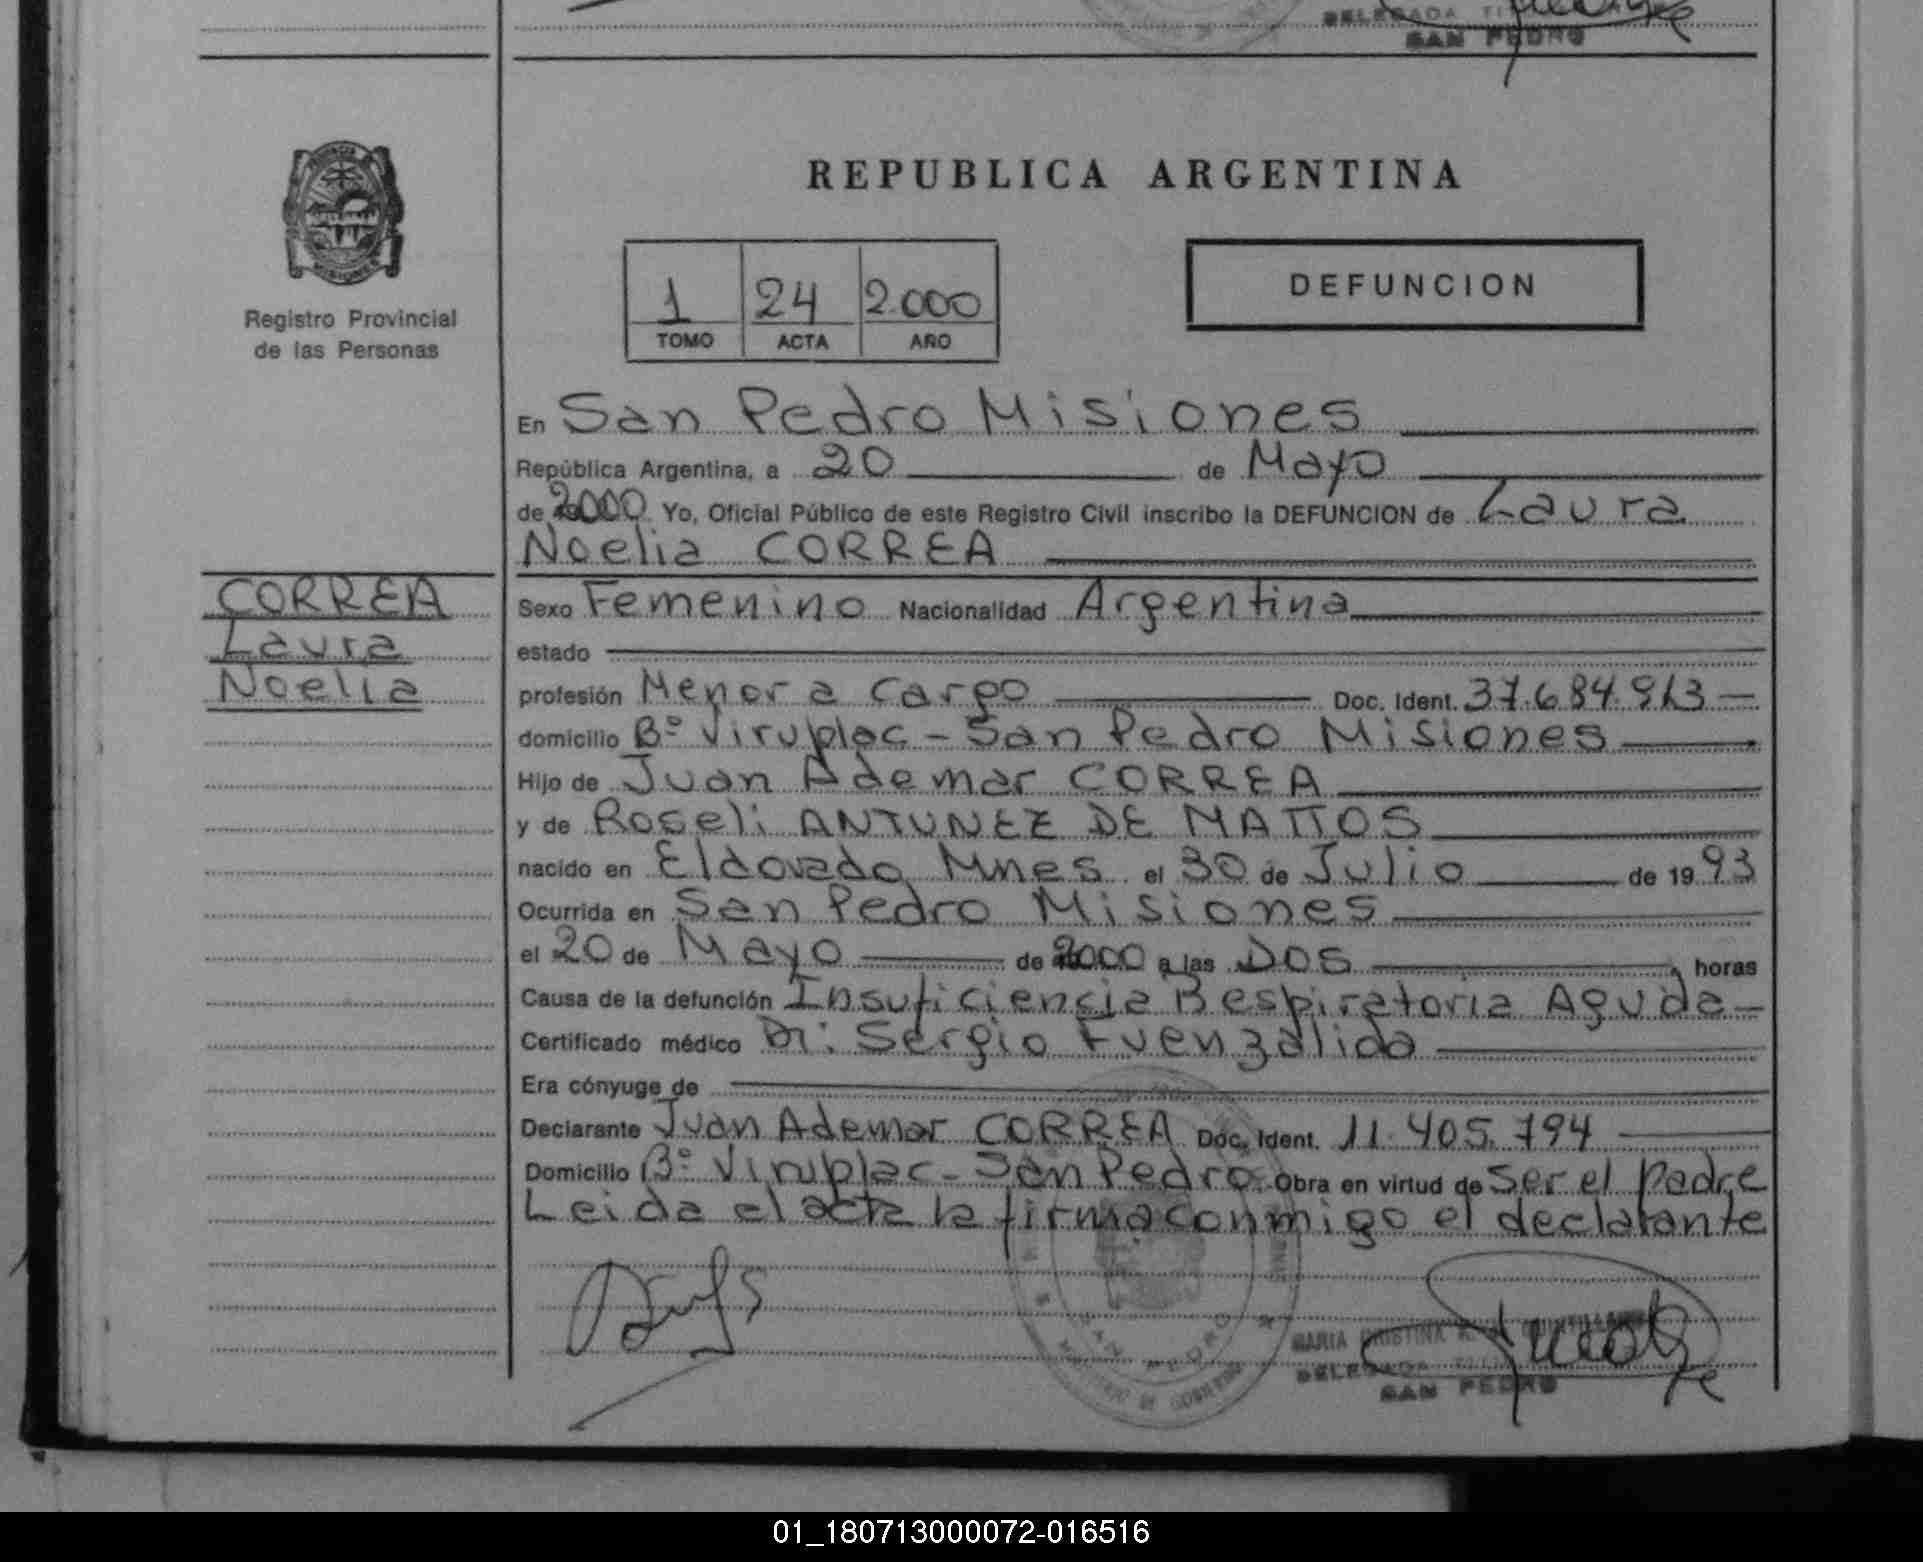 DELEGADA
SAN PEDRO
PROVINCIA DE
MISIONES
Registro Provincial
de las Personas
REPUBLICA ARGENTINA
1 24 2.000
TOMO ACTA AÑO
DEFUNCION
En San Pedro Misiones
República Argentina, a 20 de Mayo
de 2000 Yo, Oficial Público de este Registro Civil inscribo la DEFUNCION de Laura
Noelia CORREA
CORREA
Laura
Noelia
Sexo Femenino Nacionalidad Argentina
estado
profesión Menor a cargo Doc. Ident. 37.684.913
domicilio Bº Viruplac - San Pedro Misiones
Hijo de Juan Ademar CORREA
y de Roseli ANTUNEZ DE MATTOS
nacido en Eldorado Mnes el 30 de Julio de 1993
Ocurrida en San Pedro Misiones
el 20 de Mayo de 2000 a las DOS horas
Causa de la defunción Insuficiencia Respiratoria Aguda
Certificado médico Dr: Sergio Fuenzalida
Era cónyuge de
Declarante Juan Ademar CORREA Doc. Ident. 11.405.794
Domicilio Bº Viruplac - San Pedro. Obra en virtud de ser el padre
Leida el acta la firma conmigo el declarante
SAN PEDRO
MINISTERIO DE GOBIERNO
MARIA CRISTINA
DELEGADA
SAN PEDRO
01_180713000072-016516